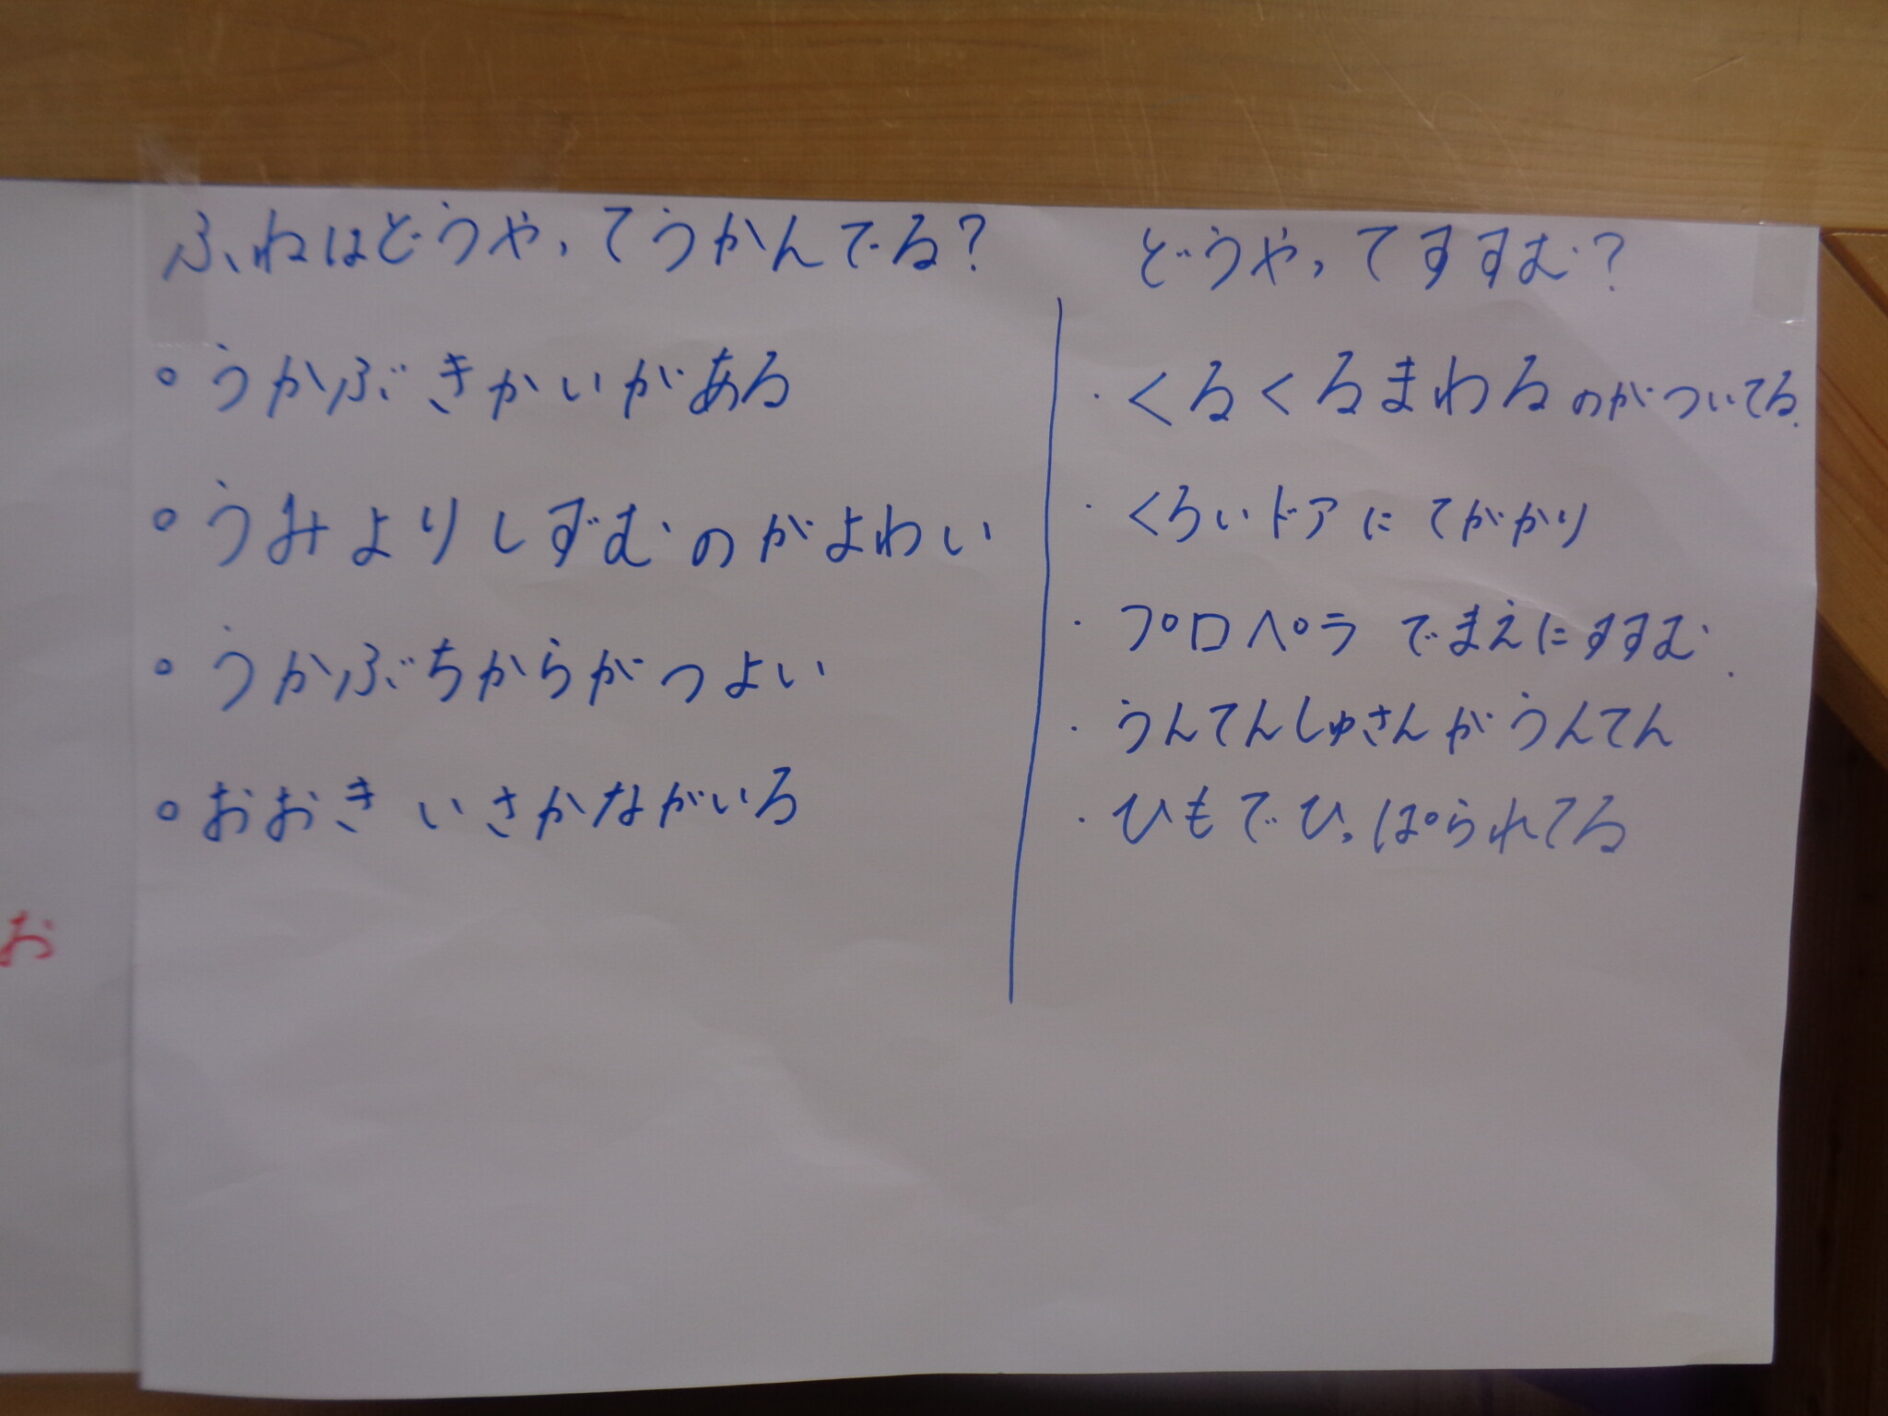 ふねはどうやってうかんでる?
・うかぶきかいがある
・うみよりしずむのがよわい
・うかぶちからがつよい
・おおきいさかながいる
どうやってすすむ?
・くるくるまわるのがついてる.
・くろいドアにてがかり
・プロペラでまえにすすむ.
・うんてんしゅさんがうんてん
・ひもでひっぱられてる
お